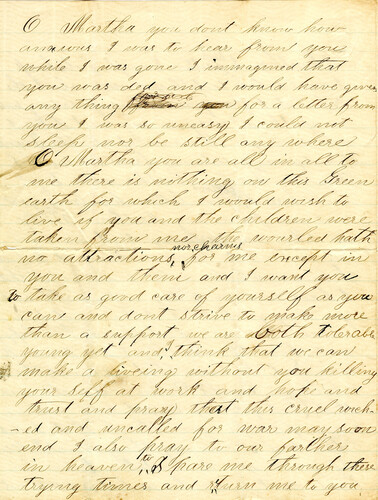 O Martha you dont know how
anxious I was to hear from you
while I was gone I immagined that
you was ded and I would have given
any thing for a letter from
you I was so uneasy I could not
sleep nor be still any where
O Martha you are all in all to
me there is nothing on this Green
earth for which I would wish to
live if you and the children were
taken from me the wourled hath
nor charms
no attractions for me except in
you and them and I want you
to take as good care of yourself as you
can and dont strive to make more
than a support we are both tolerable
young yet and I think that we can
make a liveing without you killing
your self at work and hope and
trust and pray that this cruel wick-
-ed and uncalled for war may soon
end I also pray to our farther
in heaven to spare me through these
trying times and return me to you